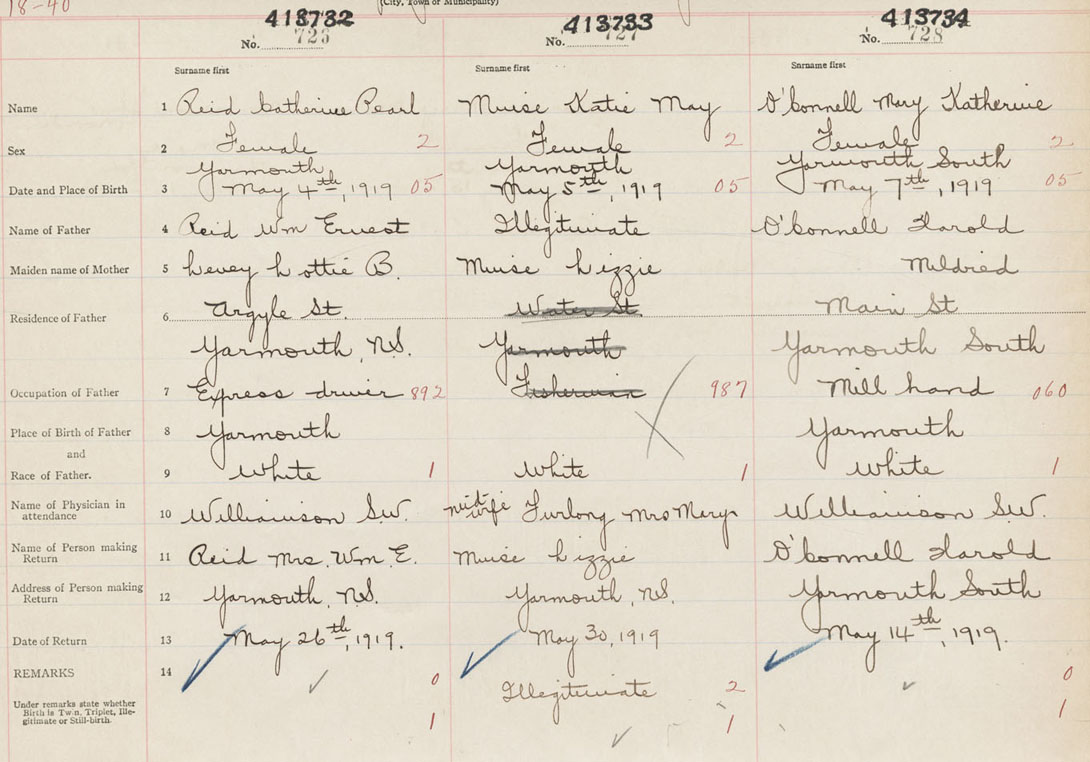 18-40
(City, Town or Municipality)
413732 413733 413734
No. 725 No. 727 No. 728
Surname first Surname first Surname first
Name 1 Reid Catherine Pearl Muise Katie May O'Connell Mary Katherine
Sex 2 Female 2 Female 2 Female 2
Yarmouth Yarmouth Yarmouth South
Date and Place of Birth 3 May 4th, 1919 05 May 5th, 1919 05 May 7th, 1919 05
Name of Father 4 Reid Wm Ernest Illegitimate O'Connell Harold
Maiden name of Mother 5 Levey Lottie B. Muise Lizzie Mildred
Residence of Father 6 Argyle St. Water St. Main St
Yarmouth, N.S. Yarmouth Yarmouth South
Occupation of Father 7 Express driver 892 Fisherman 987 Mill hand 060
Place of Birth of Father 8 Yarmouth Yarmouth
and
Race of Father. 9 White 1 White 1 White 1
Name of Physician in attendance 10 Williamson S.W. midwife Furlong Mrs Mary Williamson S.W.
Name of Person making Return 11 Reid Mrs. Wm. E. Muise Lizzie O'Connell Harold
Address of Person making Return 12 Yarmouth, N.S. Yarmouth, N.S. Yarmouth South
Date of Return 13 May 26th, 1919. May 30, 1919 May 14th, 1919.
REMARKS 14 0 Illegitimate 2 0
Under remarks state whether
Birth is Twin, Triplet, Ille-
gitimate or Still-birth. 1 1 1